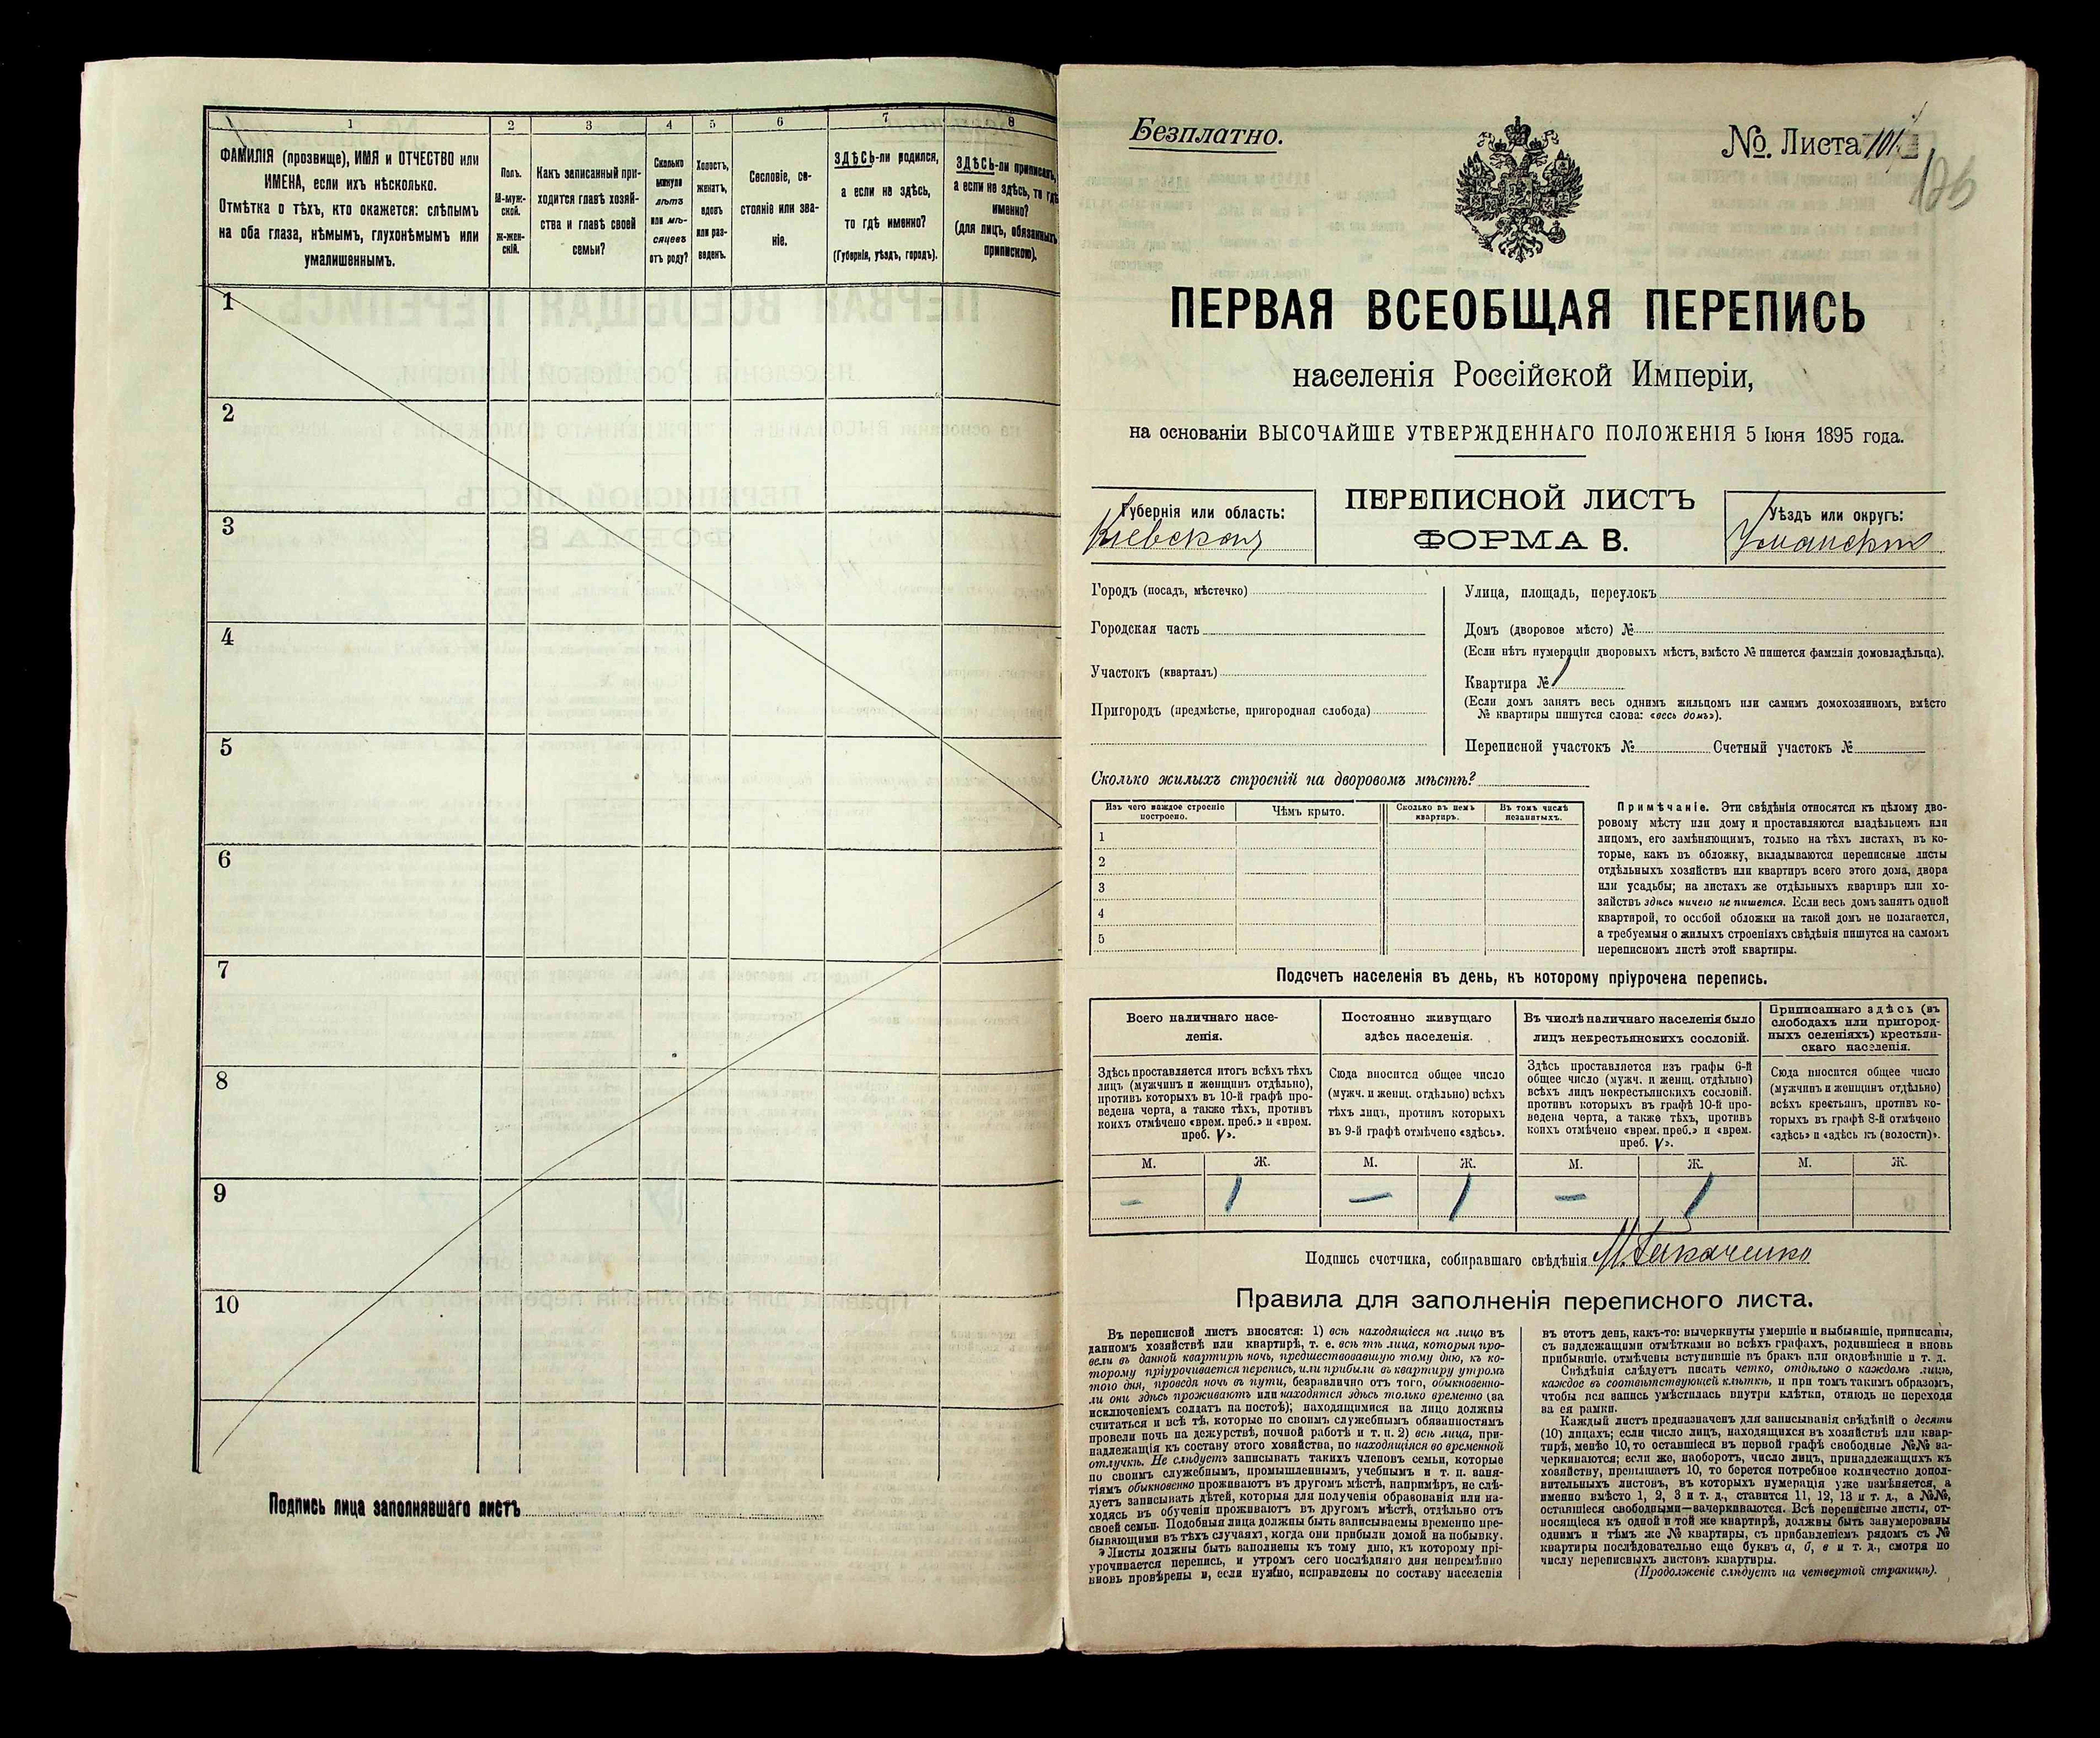 1 2 3 4 5 6 7 8
ФАМИЛІЯ (прозвище), ИМЯ и ОТЧЕСТВО или
ИМЕНА, если ихъ нѣсколько.
Отмѣтка о тѣхъ, кто окажется: слѣпымъ
на оба глаза, нѣмымъ, глухонѣмымъ или
умалишеннымъ.
Полъ.
М-муж-
ской.
Ж-жен-
скій.
Какъ записанный при-
ходится главѣ хозяй-
ства и главѣ своей
семьи?
Сколько
минуло
лѣтъ
или мѣ-
сяцевъ
отъ роду?
Холостъ,
женатъ,
вдовъ
или раз-
веденъ.
Сословіе, со-
стояніе или зва-
ніе.
ЗДѢСЬ-ли родился,
а если не здѣсь,
то гдѣ именно?
(Губернія, уѣздъ, городъ).
ЗДѢСЬ-ли приписанъ,
а если не здѣсь, то гдѣ
именно?
(для лицъ, обязанныхъ
припискою).
1
2
3
4
5
6
7
8
9
10
Подпись лица заполнявшаго листъ
Безплатно.
№. Листа 101
ПЕРВАЯ ВСЕОБЩАЯ ПЕРЕПИСЬ
населенія Россійской Имперіи,
на основаніи ВЫСОЧАЙШЕ УТВЕРЖДЕННАГО ПОЛОЖЕНІЯ 5 Іюня 1895 года.
Губернія или область:
Кіевская
ПЕРЕПИСНОЙ ЛИСТЪ
ФОРМА В.
Уѣздъ или округъ:
Уманскій
Городъ (посадъ, мѣстечко)
Городская часть
Участокъ (кварталъ)
Пригородъ (предмѣстье, пригородная слобода)
Улица, площадь, переулокъ
Домъ (дворовое мѣсто) №
(Если нѣтъ нумераціи дворовыхъ мѣстъ, вмѣсто № пишется фамилія домовладѣльца).
Квартира № 1
(Если домъ занятъ весь однимъ жильцомъ или самимъ домохозяиномъ, вмѣсто
№ квартиры пишутся слова: «весь домъ»).
Переписной участокъ № Счетный участокъ №
Сколько жилыхъ строеній на дворовомъ мѣстѣ?
Изъ чего каждое строеніе
построено.
Чѣмъ крыто.
Сколько въ немъ
квартиръ.
Въ томъ числѣ
незанятыхъ.
1
2
3
4
5
Примѣчаніе. Эти свѣдѣнія относятся къ цѣлому дво-
ровому мѣсту или дому и проставляются владѣльцемъ или
лицомъ, его замѣняющимъ, только на тѣхъ листахъ, въ ко-
торые, какъ въ обложку, вкладываются переписные листы
отдѣльныхъ хозяйствъ или квартиръ всего этого дома, двора
или усадьбы; на листахъ же отдѣльныхъ квартиръ или хо-
зяйствъ здѣсь ничего не пишется. Если весь домъ занятъ одной
квартирой, то особой обложки на такой домъ не полагается,
а требуемыя о жилыхъ строеніяхъ свѣдѣнія пишутся на самомъ
переписномъ листѣ этой квартиры.
Подсчетъ населенія въ день, къ которому пріурочена перепись.
Всего наличнаго насе-
ленія.
Постоянно живущаго
здѣсь населенія.
Въ числѣ наличнаго населенія было
лицъ некрестьянскихъ сословій.
Приписаннаго здѣсь (въ
слободахъ или пригород-
ныхъ селеніяхъ) крестьян-
скаго населенія.
Здѣсь проставляется итогъ всѣхъ тѣхъ
лицъ (мужчинъ и женщинъ отдѣльно),
противъ которыхъ въ 10-й графѣ про-
ведена черта, а также тѣхъ, противъ
коихъ отмѣчено «врем. преб.» и «врем.
преб. V».
Сюда вносится общее число
(мужч. и женщ. отдѣльно) всѣхъ
тѣхъ лицъ, противъ которыхъ
въ 9-й графѣ отмѣчено «здѣсь».
Здѣсь проставляется изъ графы 6-й
общее число (мужч. и женщ. отдѣльно)
всѣхъ лицъ некрестьянскихъ сословій.
противъ которыхъ въ графѣ 10-й про-
ведена черта, а также тѣхъ, противъ
коихъ отмѣчено «врем. преб.» и «врем.
преб. V».
Сюда вносится общее число
(мужчинъ и женщинъ отдѣльно)
всѣхъ крестьянъ, противъ ко-
торыхъ въ графѣ 8-й отмѣчено
«здѣсь» и «здѣсь къ (волости)».
М. Ж. М. Ж. М. Ж. М. Ж.
– 1 – 1 – 1
Подпись счетчика, собиравшаго свѣдѣнія
Правила для заполненія переписного листа.
Въ переписной листъ вносятся: 1) всѣ находящіеся на лицо въ
данномъ хозяйствѣ или квартирѣ, т. е. всѣ тѣ лица, которыя про-
вели въ данной квартирѣ ночь, предшествовавшую тому дню, къ ко-
торому пріурочивается перепись, или прибыли въ квартиру утромъ
того дня, проведя ночь въ пути, безразлично отъ того, обыкновенно-
ли они здѣсь проживаютъ или находятся здѣсь только временно (за
исключеніемъ солдатъ на постоѣ); находящимися на лицо должны
считаться и всѣ тѣ, которые по своимъ служебнымъ обязанностямъ
провели ночь на дежурствѣ, ночной работѣ и т. п. 2) всѣ лица, при-
надлежащія къ составу этого хозяйства, но находящіяся во временной
отлучкѣ. Не слѣдуетъ записывать такихъ членовъ семьи, которые
по своимъ служебнымъ, промышленнымъ, учебнымъ и т. п. заня-
тіямъ обыкновенно проживаютъ въ другомъ мѣстѣ, напримѣръ, не слѣ-
дуетъ записывать дѣтей, которыя для полученія образованія или на-
ходясь въ обученіи проживаютъ въ другомъ мѣстѣ, отдѣльно отъ
своей семьи. Подобныя лица должны быть записываемы временно пре-
бывающими въ тѣхъ случаяхъ, когда они прибыли домой на побывку.
Листы должны быть заполнены къ тому дню, къ которому прі-
урочивается перепись, и утромъ сего послѣдняго дня непремѣнно
вновь провѣрены и, если нужно, исправлены по составу населенія
въ этотъ день, какъ-то: вычеркнуты умершіе и выбывшіе, приписаны,
съ надлежащими отмѣтками во всѣхъ графахъ, родившіеся и вновь
прибывшіе, отмѣчены вступившіе въ бракъ или овдовѣвшіе и т. д.
Свѣдѣнія слѣдуетъ писать четко, отдѣльно о каждомъ лицѣ,
каждое въ соотвѣтствующей клѣткѣ, и при томъ такимъ образомъ,
чтобы вся запись умѣстилась внутри клѣтки, отнюдь не переходя
за ея рамки.
Каждый листъ предназначенъ для записыванія свѣдѣній о десяти
(10) лицахъ; если число лицъ, находящихся въ хозяйствѣ или квар-
тирѣ, менѣе 10, то оставшіеся въ первой графѣ свободные №№ за-
черкиваются; если же, наоборотъ, число лицъ, принадлежащихъ къ
хозяйству, превышаетъ 10, то берется потребное количество допол-
нительныхъ листовъ, въ которыхъ нумерація уже измѣняется, а
именно вмѣсто 1, 2, 3 и т. д., ставится 11, 12, 13 и т. д., а №№,
оставшіеся свободными—зачеркиваются. Всѣ переписные листы, от-
носящіеся къ одной и той же квартирѣ, должны быть занумерованы
однимъ и тѣмъ же № квартиры, съ прибавленіемъ рядомъ съ №
квартиры послѣдовательно еще буквъ а, б, в и т. д., смотря по
числу переписныхъ листовъ квартиры.
(Продолженіе слѣдуетъ на четвертой страницѣ).